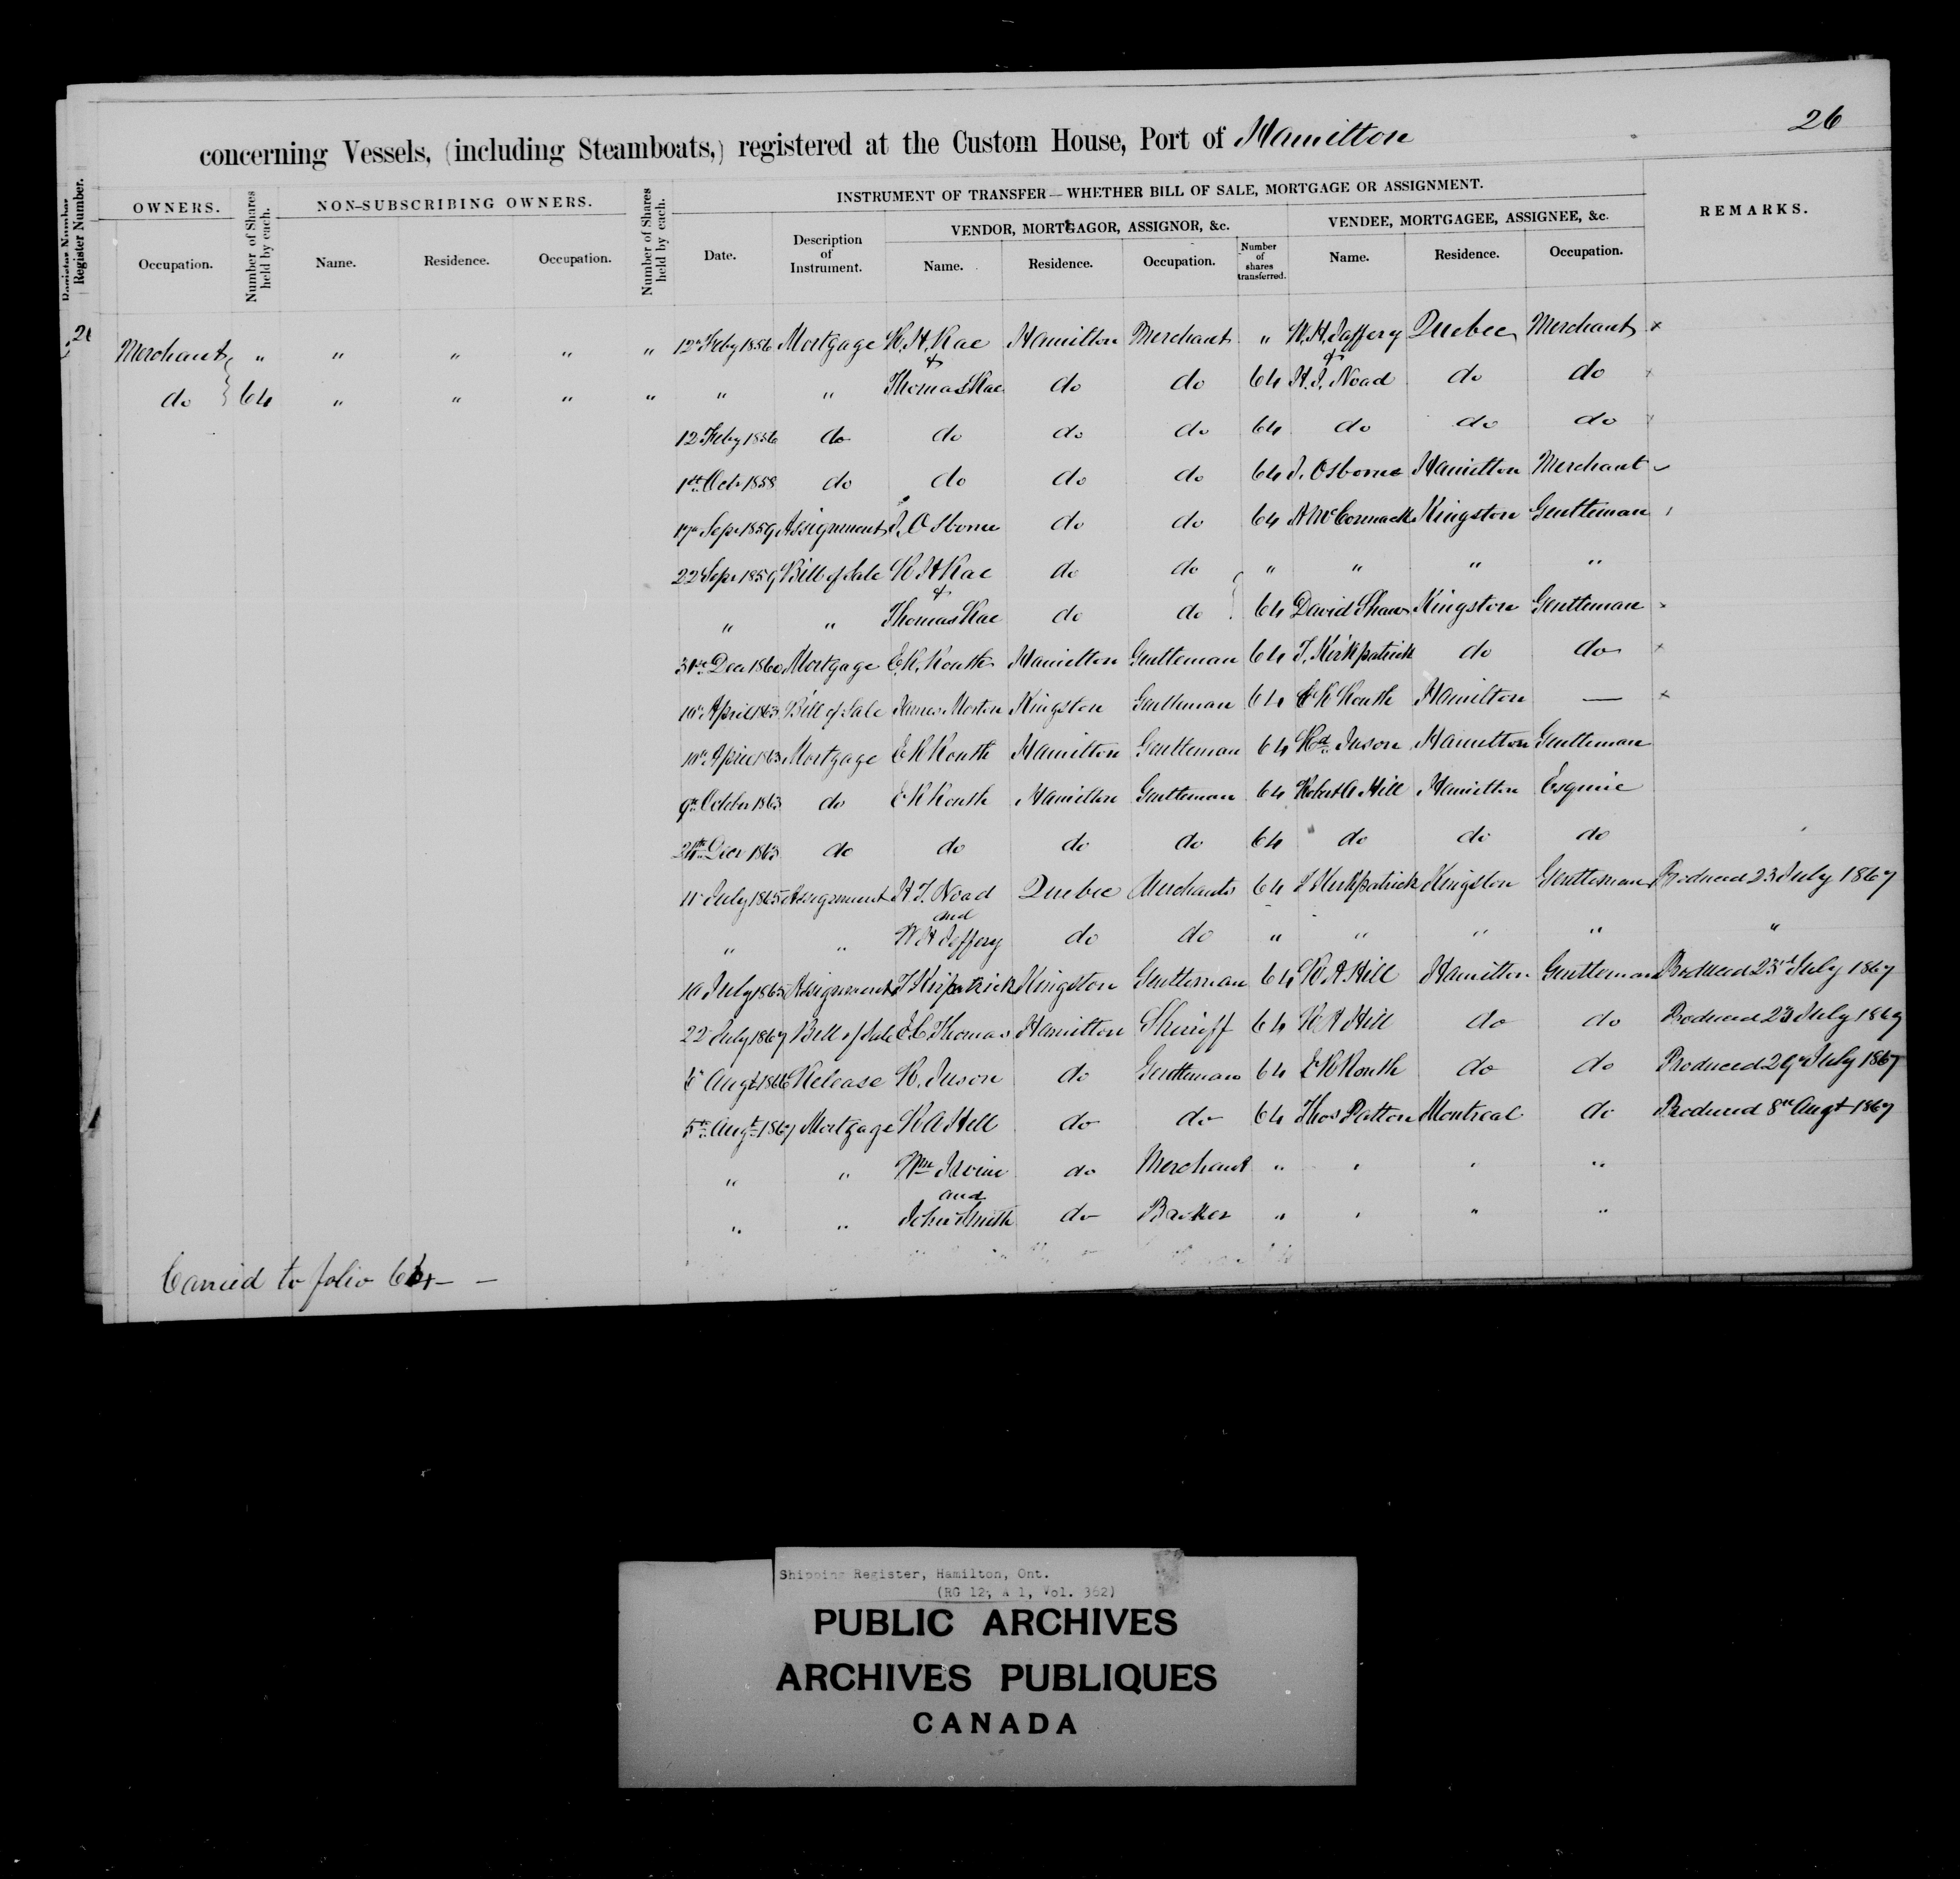 26
concerning Vessels, (including Steamboats,) registered at the Custom House, Port of Hamilton
Register Number.
OWNERS.
Occupation.
Number of Shares held by each.
NON-SUBSCRIBING OWNERS.
Name. Residence. Occupation.
Number of Shares held by each.
INSTRUMENT OF TRANSFER—WHETHER BILL OF SALE, MORTGAGE OR ASSIGNMENT.
Date. Description of Instrument.
VENDOR, MORTGAGOR, ASSIGNOR, &c.
Name. Residence. Occupation. Number of shares transferred.
VENDEE, MORTGAGEE, ASSIGNEE, &c.
Name. Residence. Occupation.
REMARKS.
Merchant " " " " " 12th Feby 1856 Mortgage R. H. Rae Hamilton Merchant " W. H. Jaffery Quebec Merchant x
do 64 " " " " " " & Thomas Rae do do 64 & H. J. Noad do do x
12 Feby 1856 do do do do 64 do do do
1st Oct. 1858 do do do do 64 J. Osborne Hamilton Merchant
17th Sepr 1859 Assignment J. Osborne do do 64 A McCormack Kingston Gentleman
22d Sepr 1859 Bill of Sale R H Rae do do " " " "
" " & Thomas Rae do do 64 David Shaw Kingston Gentleman x
31st Decr 1860 Mortgage E. R. Routh Hamilton Gentleman 64 T. Kirkpatrick do do x
10th April 1863 Bill of Sale James Morton Kingston Gentleman 64 E R Routh Hamilton — x
10th April 1863 Mortgage E R Routh Hamilton Gentleman 64 Rd Juson Hamilton Gentleman
9th October 1863 do E R Routh Hamilton Gentleman 64 Robert A Hill Hamilton Esquire
24th Decr 1863 do do do do 64 do do do
11 July 1865 Assignment H J. Noad Quebec Merchants 64 T Kirkpatrick Kingston Gentleman Produced 23 July 1867
" " and W H Jeffery do do " " " " "
10 July 1865 Assignment T Kirkpatrick Kingston Gentleman 64 R A Hill Hamilton Gentleman Produced 23d July 1867
22 July 1867 Bill of Sale E C Thomas Hamilton Sheriff 64 R A Hill do do Produced 23 July 1867
Augt 1866 Release R. Juson do Gentleman 64 E R Routh do do Produced 29th July 1867
5th Augt 1867 Mortgage R A Hill do do 64 Thos Patton Montreal do Produced 8th Augt 1867
" " Wm Irvine do Merchant " " " "
" " and John Smith do Broker " " " "
Carried to folio
Shipping Register, Hamilton, Ont.
(RG 12, A 1, Vol. 362)
PUBLIC ARCHIVES
ARCHIVES PUBLIQUES
CANADA